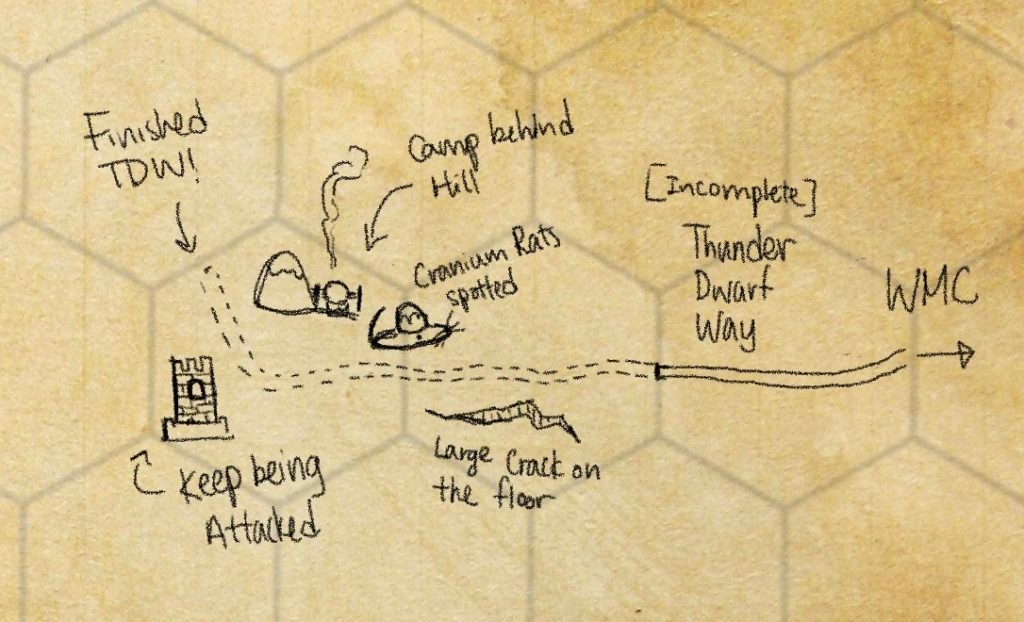 Finished
TDW!
Camp behind
Hill
Cranium Rats
spotted
[Incomplete]
Thunder
Dwarf
Way
WMC
Large Crack on
the floor
Keep being
Attacked